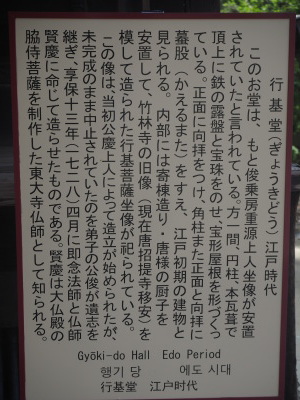 行基堂（ぎょうきどう）江戸時代
このお堂は、もと俊乗房重源上人坐像が安置
されていたと言われている。方一間、円柱、本瓦葺で
頂上に鉄の露盤と宝珠をのせ、宝形屋根を形づくっ
ている。正面に向拝をつけ、角柱また正面と向拝に
蟇股（かえるまた）をすえ、江戸初期の建物と
見られる。内部には寄棟造り・唐様の厨子を
安置して、竹林寺の旧像（現在唐招提寺移安）を
模して造られた行基菩薩坐像が祀られている。
この像は、当初公慶上人によって造立が始められたが、
未完成のまま中止されていたのを弟子の公俊が遺志を
継ぎ、享保十三年（一七二八）四月に即念法師と仏師
賢慶に命じて造らせたものである。賢慶は大仏殿の
脇侍菩薩を制作した東大寺仏師として知られる。
Gyōki-do Hall Edo Period
행기 당 에도 시대
行基堂 江户时代